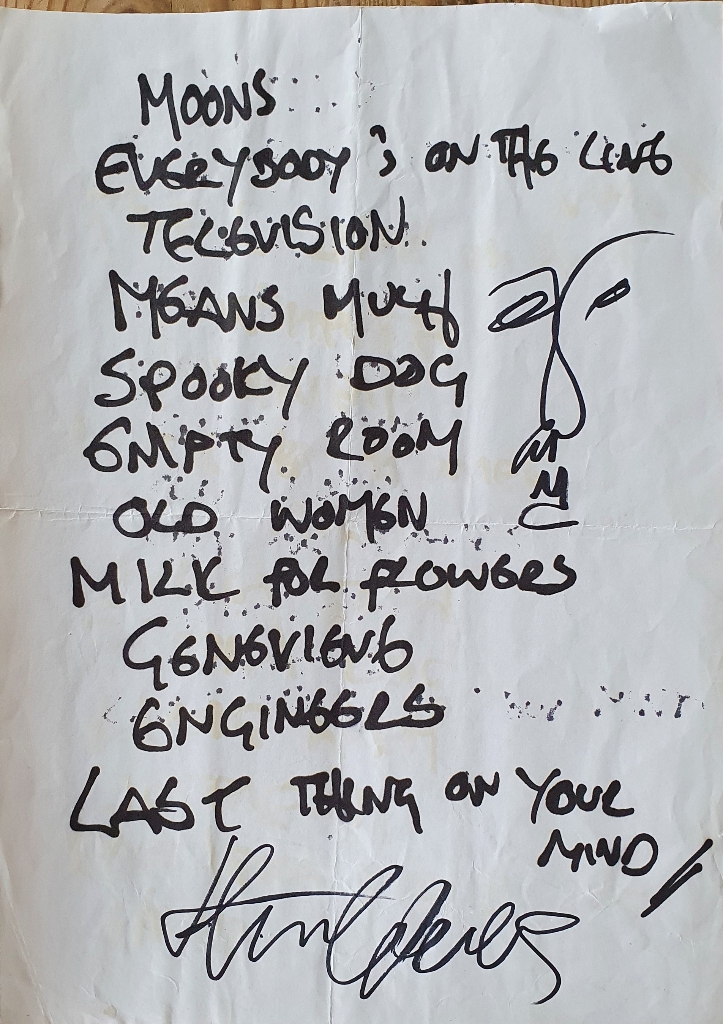 MOONS
EVERYBODY'S ON THE LINE
TELEVISION
MEANS MUCH
SPOOKY DOG
EMPTY ROOM
OLD WOMEN
MILK FOR FLOWERS
GENEVIEVE
ENGINEERS
LAST THING ON YOUR
MIND